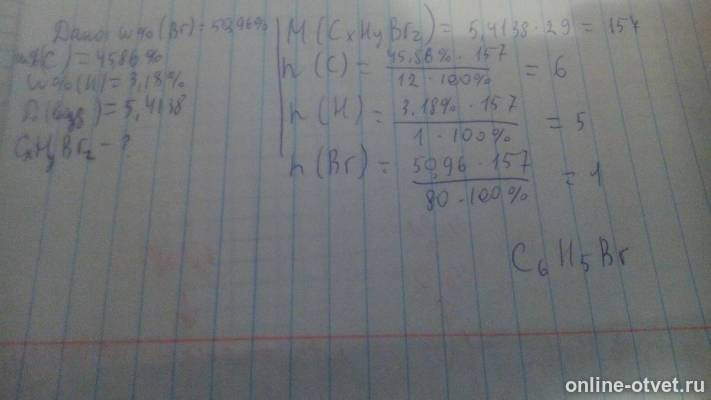 Дано: w%(Br)=50,96%
w%(C)=45,86%
w%(H)=3,18%
D(возд)=5,4138
CxHyBrz - ?
M(CxHyBrz) = 5,4138·29 = 157
n(C) = 45,86%·157 / 12·100% = 6
n(H) = 3,18%·157 / 1·100% = 5
n(Br) = 50,96·157 / 80·100% = 1
C6H5Br
online-otvet.ru